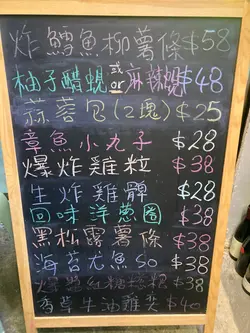 炸鱈魚柳薯條$58
柚子醋蜆或or麻辣蜆$48
蒜蓉包(2塊)$25
章魚小丸子$28
爆炸雞粒$38
生炸雞髀$28
回味洋蔥圈$38
黑松露薯條$38
海苔尤魚SO$38
$38
香草牛油雞夾$40